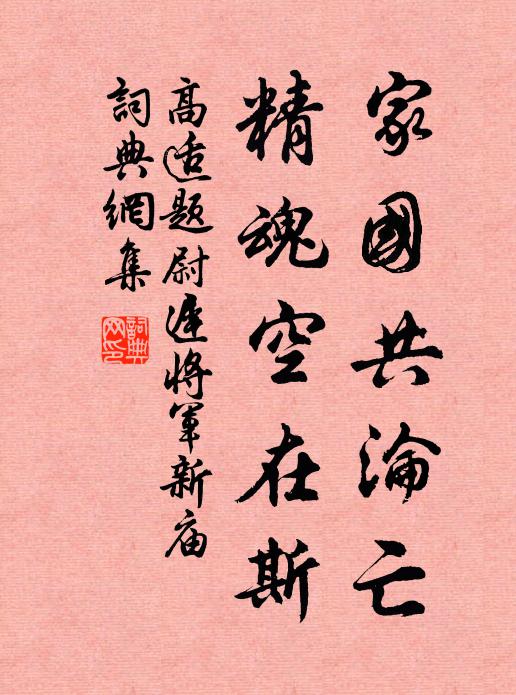 家國共淪亡
精魂空在斯
高适題尉遲將軍新庙
詞典網集
詞典網印